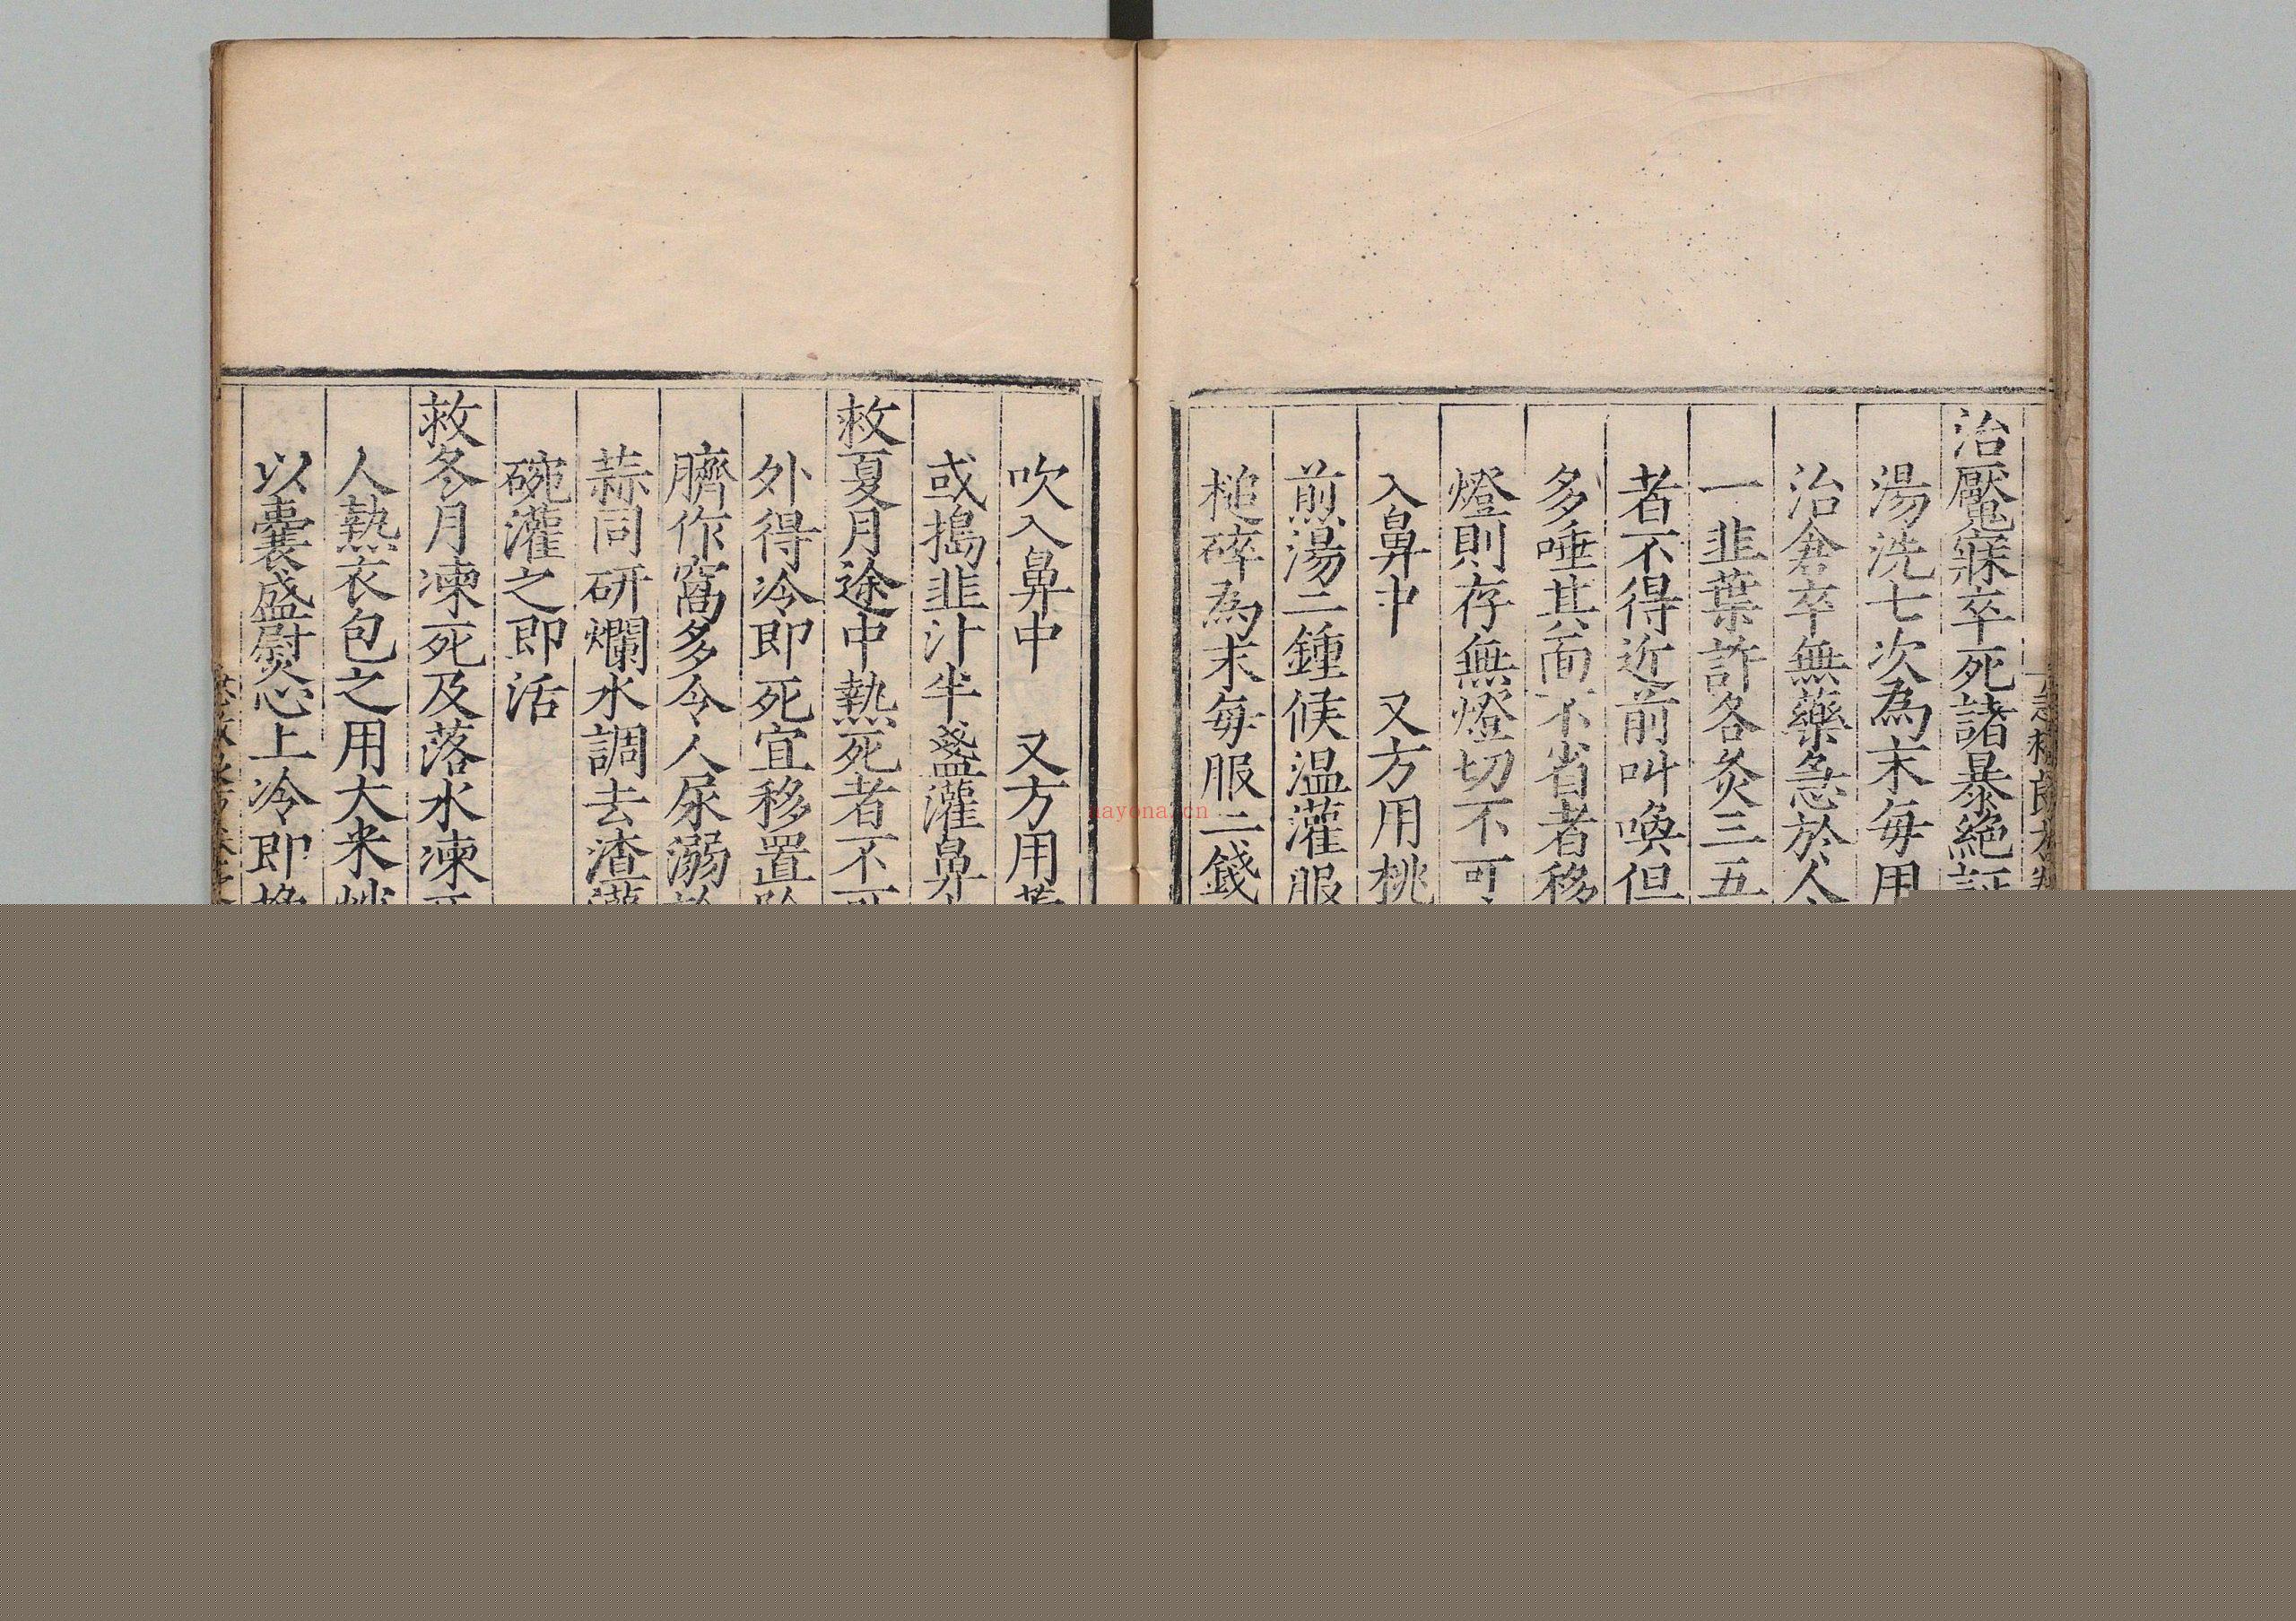 治魘寐卒死諸暴絶証
湯洗七次為末每用
治倉卒無藥急於人
一韭葉許各灸三五
者不得近前叫喚但
多唾其面不省者移
燈則存無燈切不可
入鼻中　又方用桃
煎湯二鍾候温灌服
槌碎為末每服二錢
吹入鼻中　又方用
或搗韭汁半盞灌鼻
救夏月途中熱死者不可
外得冷即死宜移置
臍作窩多令人尿溺
蒜同研爛水調去渣灌
碗灌之即活
救冬月凍死及落水凍死
人熱衣包之用大米炒
以囊盛熨心上冷即換